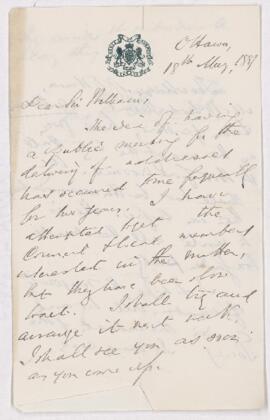 Ottawa,
18th May, 1887
Dear Sir William,
The idea of having
a public meeting for the
delivery of addresses
has occurred to me frequently
for two years. I have
attempted to get the
Council & local members
interested in the matter,
but they have been slow
I shall try and
arrange it next week.
I shall see you as soon
as you come up.